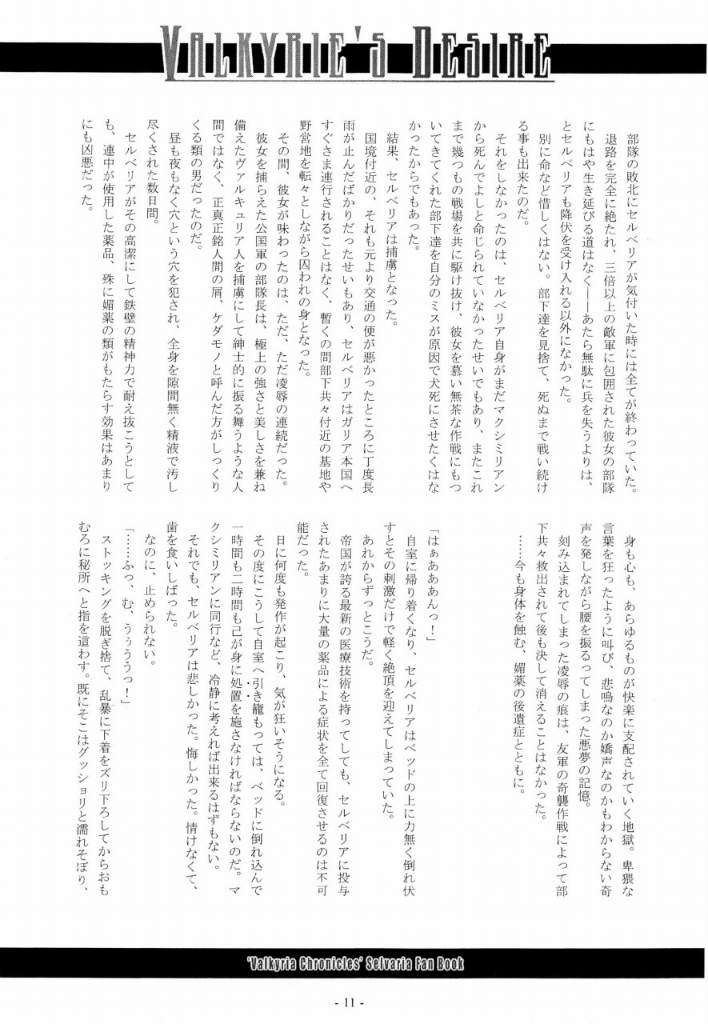 VALKYRIE'S DESIRE
部隊の敗北にセルベリアが気付いた時には全てが終わっていた。
退路を完全に絶たれ、三倍以上の敵軍に包囲された彼女の部隊
にもはや生き延びる道はなく――あたら無駄に兵を失うよりは、
とセルベリアも降伏を受け入れる以外になかった。
別に命など惜しくはない。部下達を見捨て、死ぬまで戦い続け
る事も出来たのだ。
それをしなかったのは、セルベリア自身がまだマクシミリアン
から死んでよしと命じられていなかったせいでもあり、またこれ
まで幾つもの戦場を共に駆け抜け、彼女を慕い無茶な作戦にもつ
いてきてくれた部下達を自分のミスが原因で犬死にさせたくはな
かったからでもあった。
結果、セルベリアは捕虜となった。
国境付近の、それも元より交通の便が悪かったところに丁度長
雨が止んだばかりだったせいもあり、セルベリアはガリア本国へ
すぐさま連行されることはなく、暫くの間部下共々付近の基地や
野営地を転々としながら囚われの身となった。
その間、彼女が味わったのは、ただ、ただ凌辱の連続だった。
彼女を捕らえた公国軍の部隊長は、極上の強さと美しさを兼ね
備えたヴァルキュリア人を捕虜にして紳士的に振る舞うような人
間ではなく、正真正銘人間の屑、ケダモノと呼んだ方がしっくり
くる類の男だったのだ。
昼も夜もなく穴という穴を犯され、全身を隙間無く精液で汚し
尽くされた数日間。
セルベリアがその高潔にして鉄壁の精神力で耐え抜こうとして
も、連中が使用した薬品、殊に媚薬の類がもたらす効果はあまり
にも凶悪だった。
身も心も、あらゆるものが快楽に支配されていく地獄。卑猥な
言葉を狂ったように叫び、悲鳴なのか嬌声なのかもわからない奇
声を発しながら腰を振るってしまった悪夢の記憶。
刻み込まれてしまった凌辱の痕は、友軍の奇襲作戦によって部
下共々救出されて後も決して消えることはなかった。
……今も身体を蝕む、媚薬の後遺症とともに。
「はぁあああんっ！」
自室に帰り着くなり、セルベリアはベッドの上に力無く倒れ伏
すとその刺激だけで軽く絶頂を迎えてしまっていた。
あれからずっとこうだ。
帝国が誇る最新の医療技術を持ってしても、セルベリアに投与
されたあまりに大量の薬品による症状を全て回復させるのは不可
能だった。
日に何度も発作が起こり、気が狂いそうになる。
その度にこうして自室へ引き籠もっては、ベッドに倒れ込んで
一時間も二時間も己が身に処置を施さなければならないのだ。マ
クシミリアンに同行など、冷静に考えれば出来るはずもない。
それでも、セルベリアは悲しかった。悔しかった。情けなくて、
歯を食いしばった。
なのに、止められない。
「……ふっ、む、うぅううっ！」
ストッキングを脱ぎ捨て、乱暴に下着をズリ下ろしてからおも
むろに秘所へと指を這わす。既にそこはグッショリと濡れそぼり、
'Valkyria Chronicles' Selvaria Fan Book
- 11 -